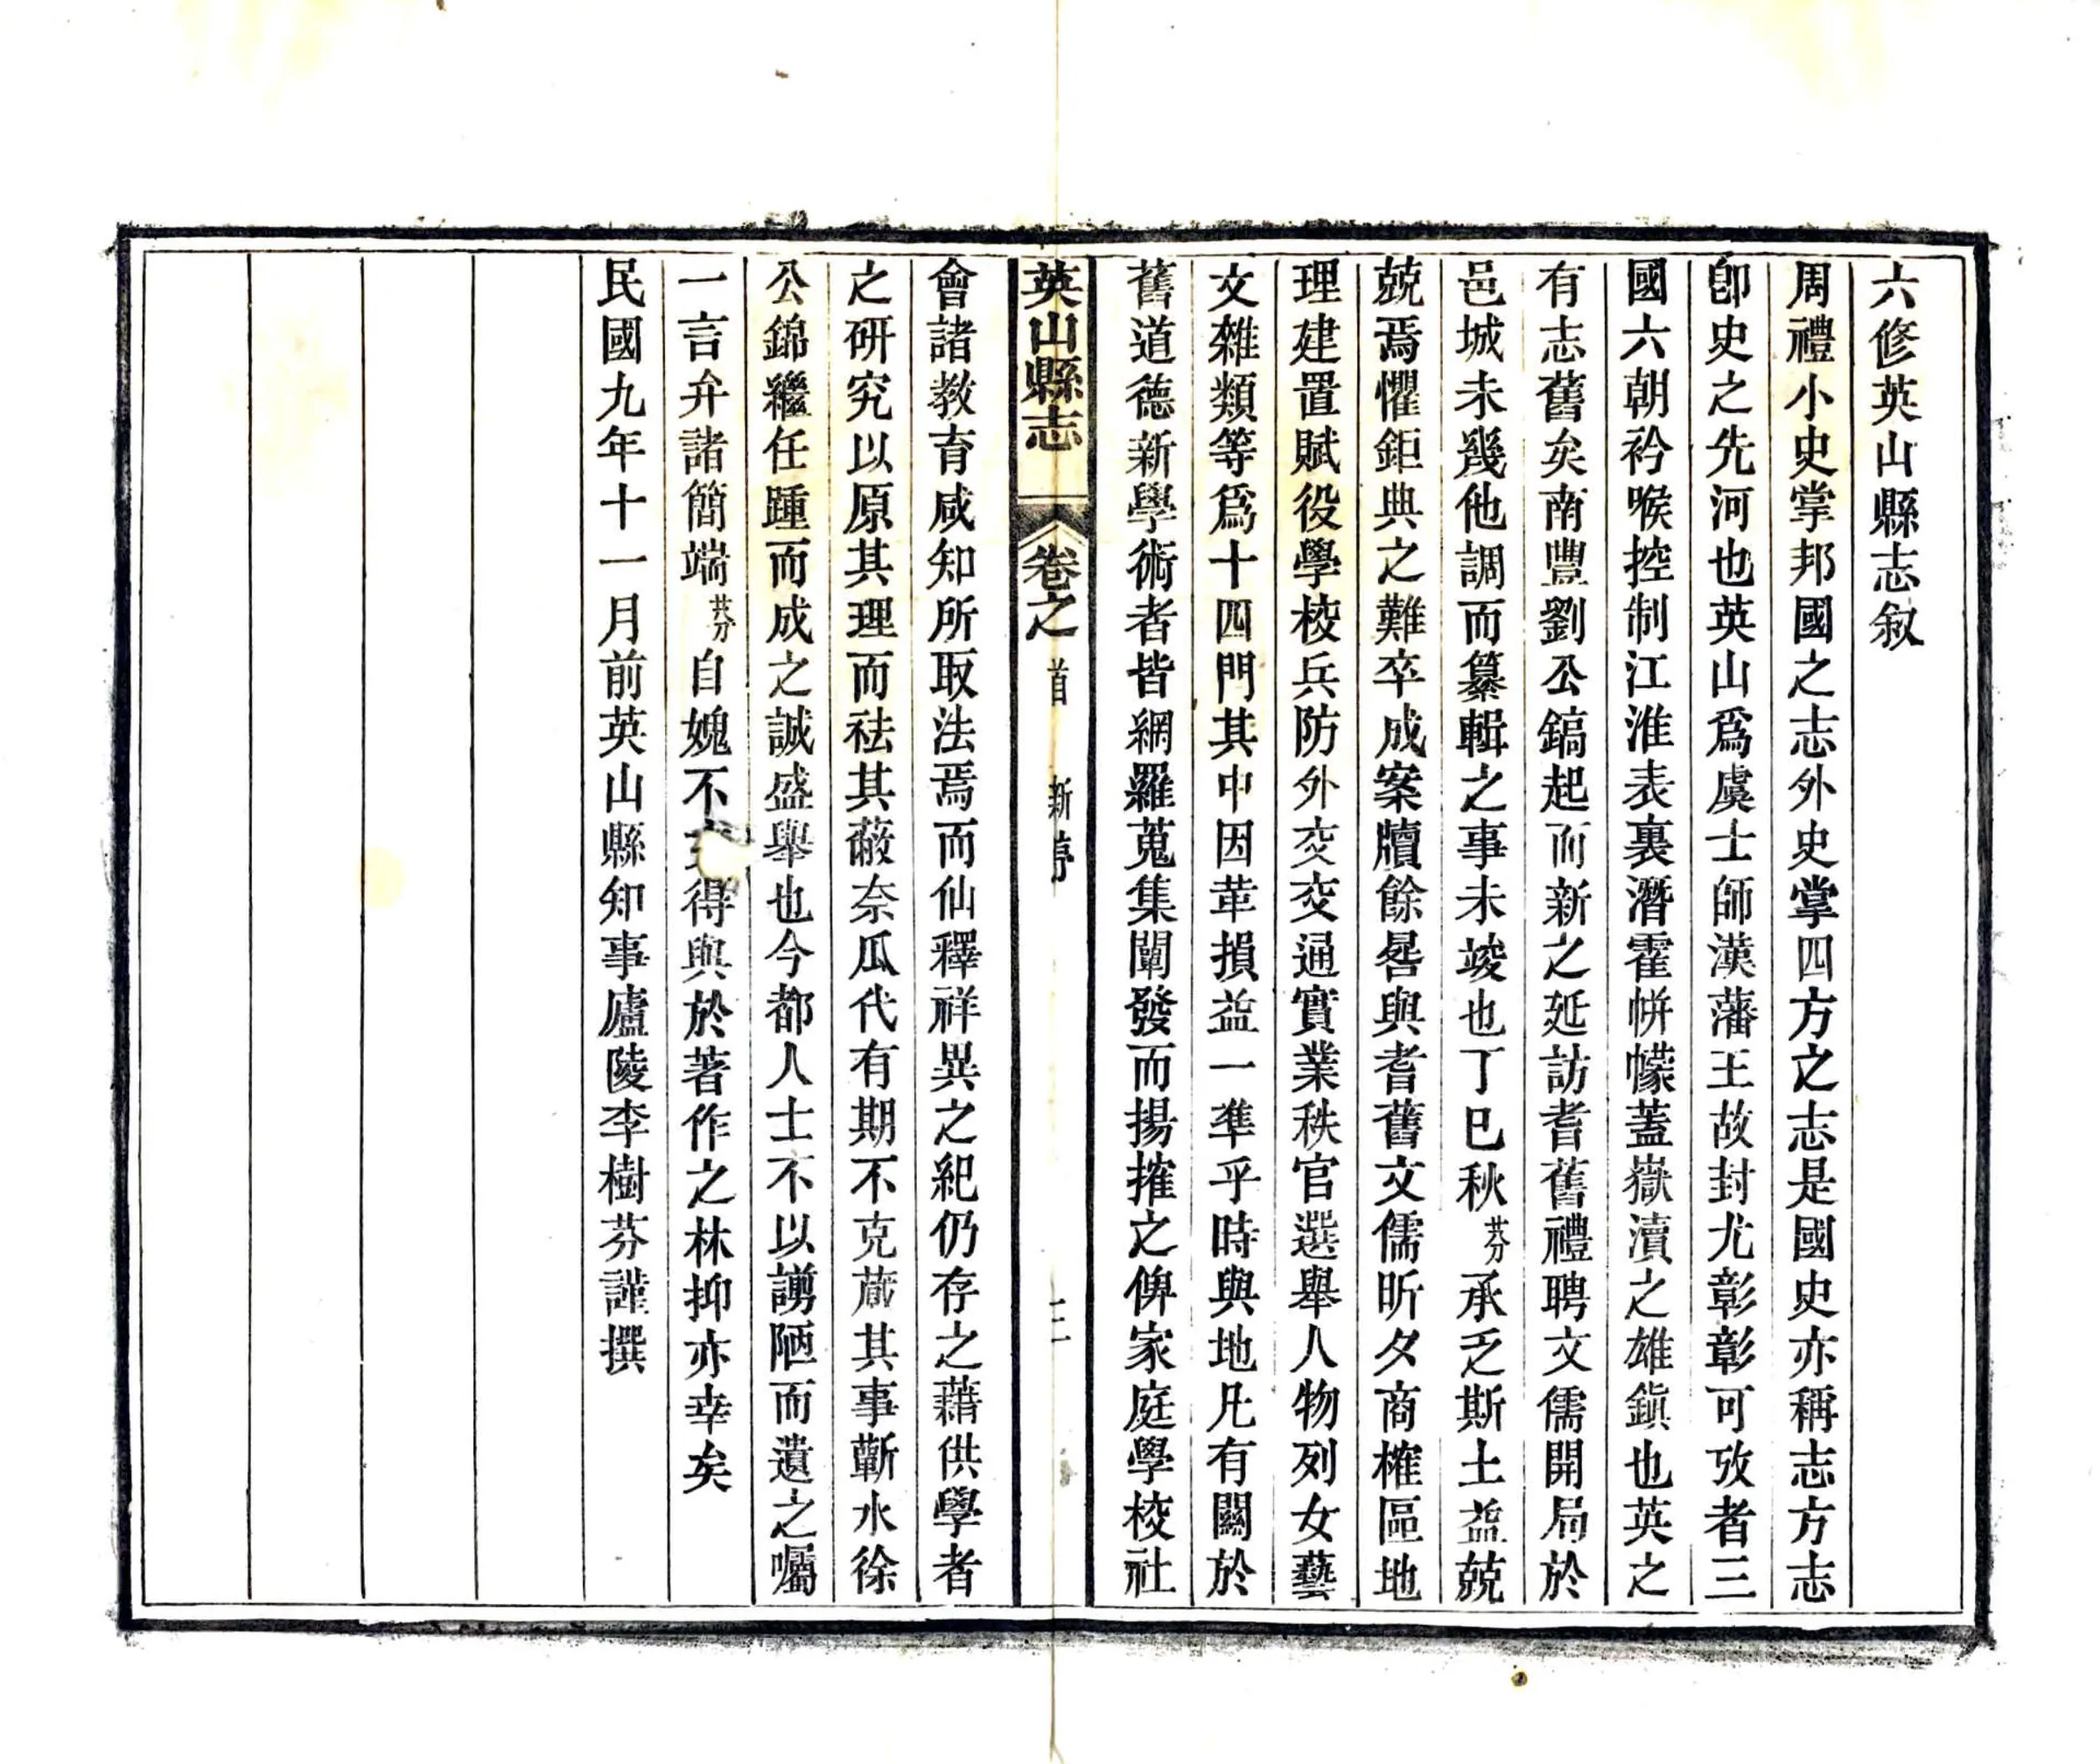 六修英山縣志叙
周禮小史掌邦國之志外史掌四方之志是國史亦稱志方志
卽史之先河也英山爲虞士師漢藩王故封尤彰彰可攷者三
國六朝衿喉控制江淮表裏潛霍帡幪蓋嶽瀆之雄鎭也英之
有志舊矣南豐劉公鎬起而新之延訪耆舊禮聘文儒開局於
邑城未幾他調而纂輯之事未竣也丁巳秋芬承乏斯土益兢
兢焉懼鉅典之難卒成案牘餘晷與耆舊文儒昕夕商榷區地
理建置賦役學校兵防外交交通實業秩官選舉人物列女藝
文雜類等爲十四門其中因革損益一準乎時與地凡有關於
舊道德新學術者皆網羅蒐集闡發而揚搉之俾家庭學校社
英山縣志 卷之首 新序 三
會諸教育咸知所取法焉而仙釋祥異之紀仍存之藉供學者
之研究以原其理而祛其蔽奈瓜代有期不克蕆其事蘄水徐
公錦繼任踵而成之誠盛舉也今都人士不以謭陋而遺之囑
一言弁諸簡端芬自媿不得與於著作之林抑亦幸矣
民國九年十一月前英山縣知事廬陵李樹芬謹撰